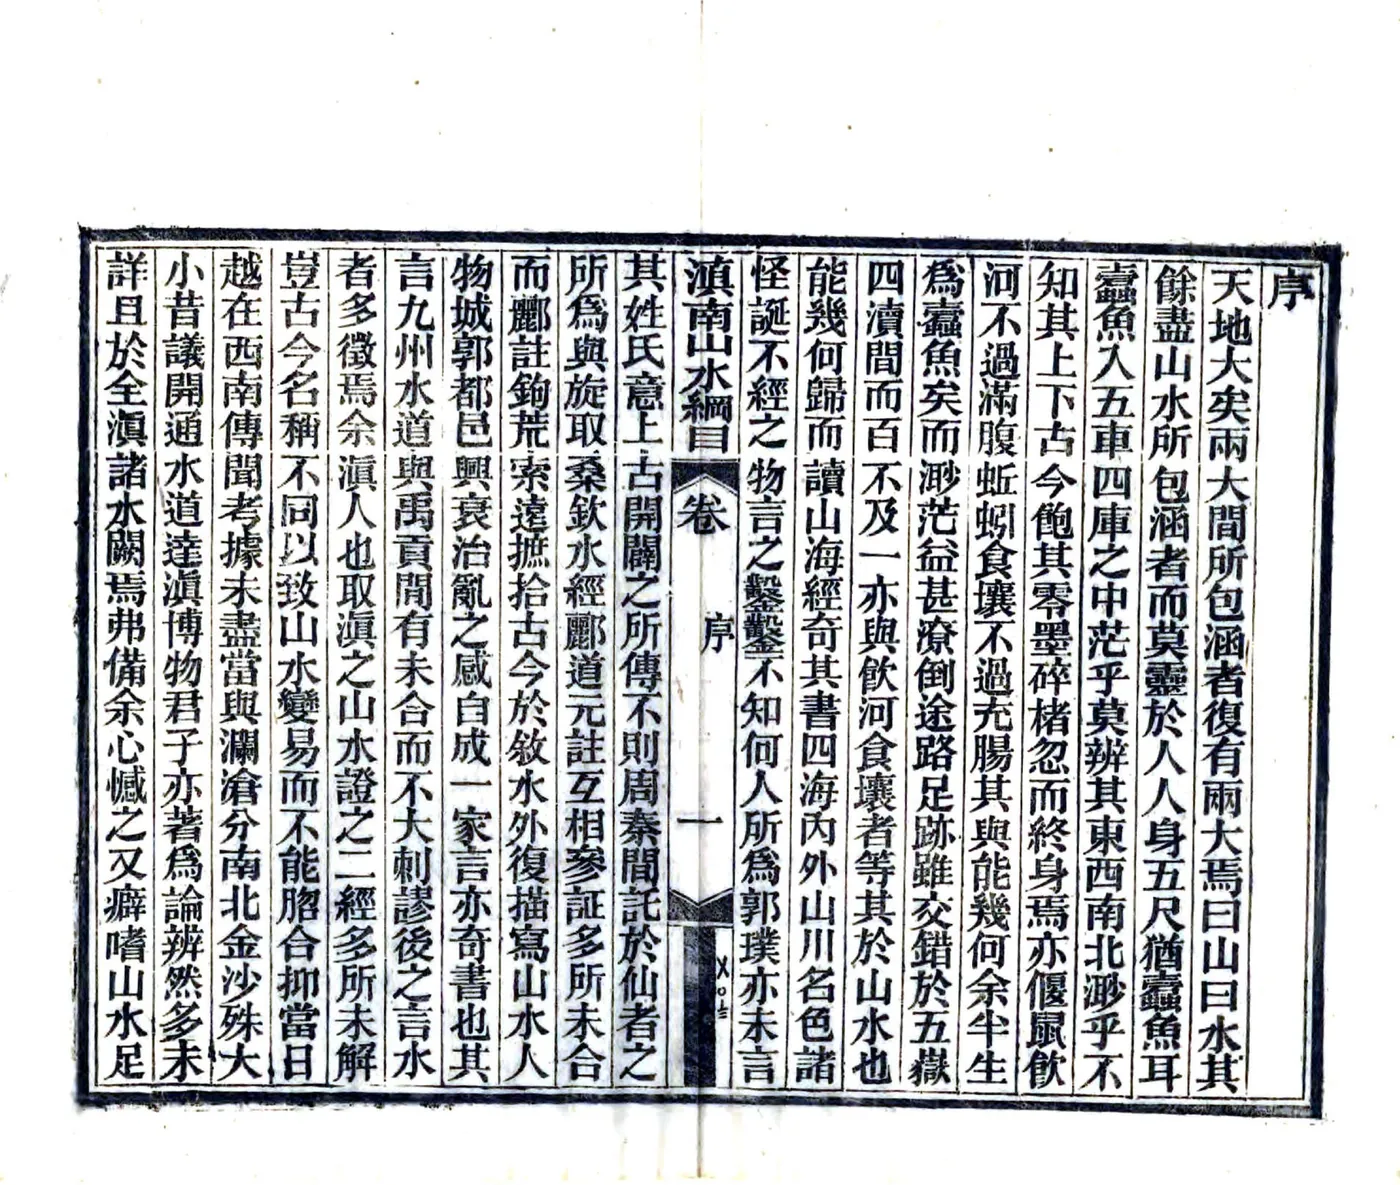 序
天地大矣兩大間所包涵者復有兩大焉曰山曰水其
餘盡山水所包涵者而莫靈於人人身五尺猶蠹魚耳
蠹魚入五車四庫之中茫乎莫辨其東西南北渺乎不
知其上下古今飽其零墨碎楮忽而終身焉亦偃鼠飮
河不過滿腹蚯蚓食壤不過充腸其與能幾何余半生
爲蠹魚矣而渺茫益甚潦倒途路足跡雖交錯於五嶽
四瀆間而百不及一亦與飮河食壤者等其於山水也
能幾何歸而讀山海經奇其書四海內外山川名色諸
怪誕不經之物言之鑿鑿不知何人所爲郭璞亦未言
滇南山水綱目
卷
序
一
其姓氏意上古開闢之所傳不則周秦間託於仙者之
所爲與旋取桑欽水經酈道元註互相參証多所未合
而酈註鉤荒索遠摭拾古今於敘水外復描寫山水人
物城郭都邑興衰治亂之感自成一家言亦奇書也其
言九州水道與禹貢間有未合而不大刺謬後之言水
者多徵焉余滇人也取滇之山水證之二經多所未解
豈古今名稱不同以致山水變易而不能脗合抑當日
越在西南傳聞考據未盡當與瀾滄分南北金沙殊大
小昔議開通水道達滇博物君子亦著爲論辨然多未
詳且於全滇諸水闕焉弗備余心憾之又癖嗜山水足